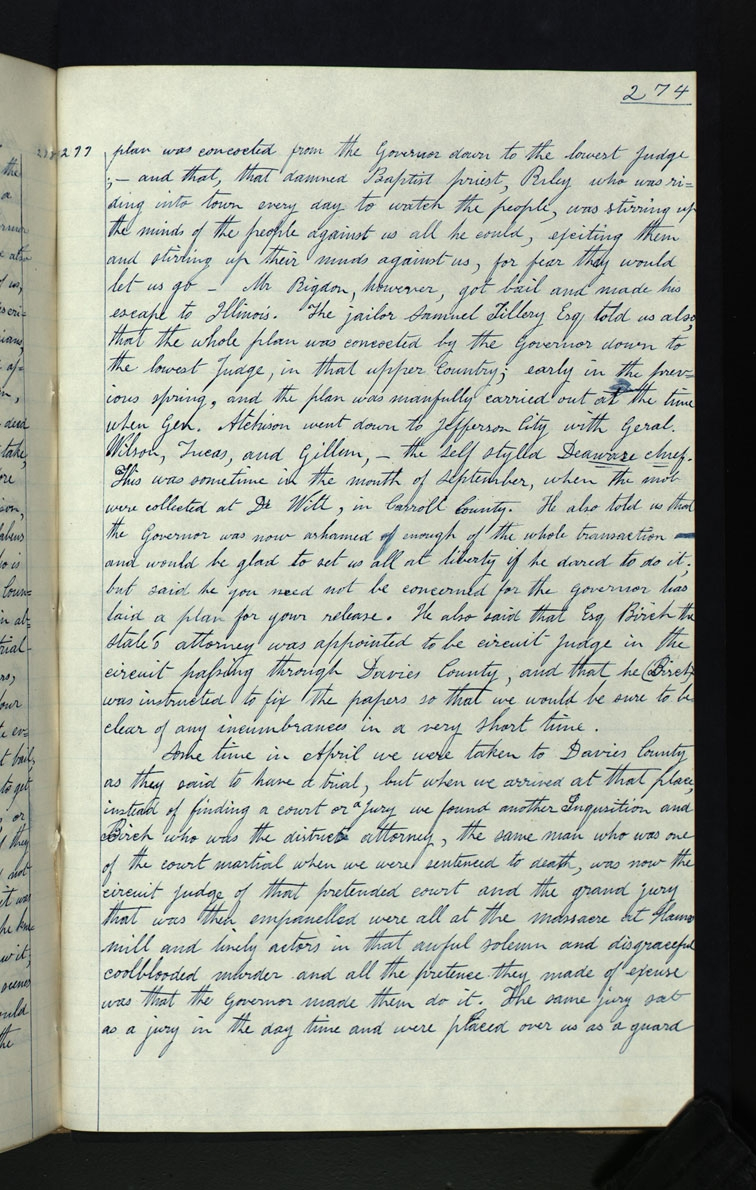 274
277 plan was concocted from the Governor down to the lowest Judge
;— and that, that damned Baptist priest, Riley who was ri=
ding into town every day to watch the people, was stirring up
the minds of the people against us all he could, exciting them
and stirring up their minds against us, for fear they would
let us go — Mr Rigdon, however, got bail and made his
escape to Illinois. The jailor Samuel Tillery Esq told us also,
that the whole plan was concocted by the Governor down to
the lowest Judge, in that upper Country; early in the prev=
ious spring, and the plan was manfully carried out at the time
when Gen. Atchison went down to Jefferson City with Geral.
Wilson, Lucas, and Gillum, — the self styled Deaware chief.
This was sometime in the month of September, when the mob
were collected at De Witt, in Carroll County. He also told us that
the Governor was now ashamed of enough of the whole transaction —
and would be glad to set us all at liberty if he dared to do it;
but said he you need not be concerned for the governor has
laid a plan for your release. He also said that Esq Birch the
state's attorney was appointed to be circuit judge in the
circuit passing through Davies County, and that he (Birch)
was instructed to fix the papers so that we would be sure to be
clear of any incumbrances in a very short time.
Some time in April we were taken to Davies County
as they said to have a trial, but when we arrived at that place,
instead of finding a court or a jury we found another Inqusition and
Birch who was the district attorney, the same man who was one
of the court martial when we were sentenced to death, was now the
circuit judge of that pretended court and the grand jury
that was then empanelled were all at the massacre at Hauns
mill and lively actors in that awful solemn and disgraceful
coolblooded murder and all the pretence they made of excuse
was that the Governor made them do it. The same jury sat
as a jury in the day time and were placed over us as a guard